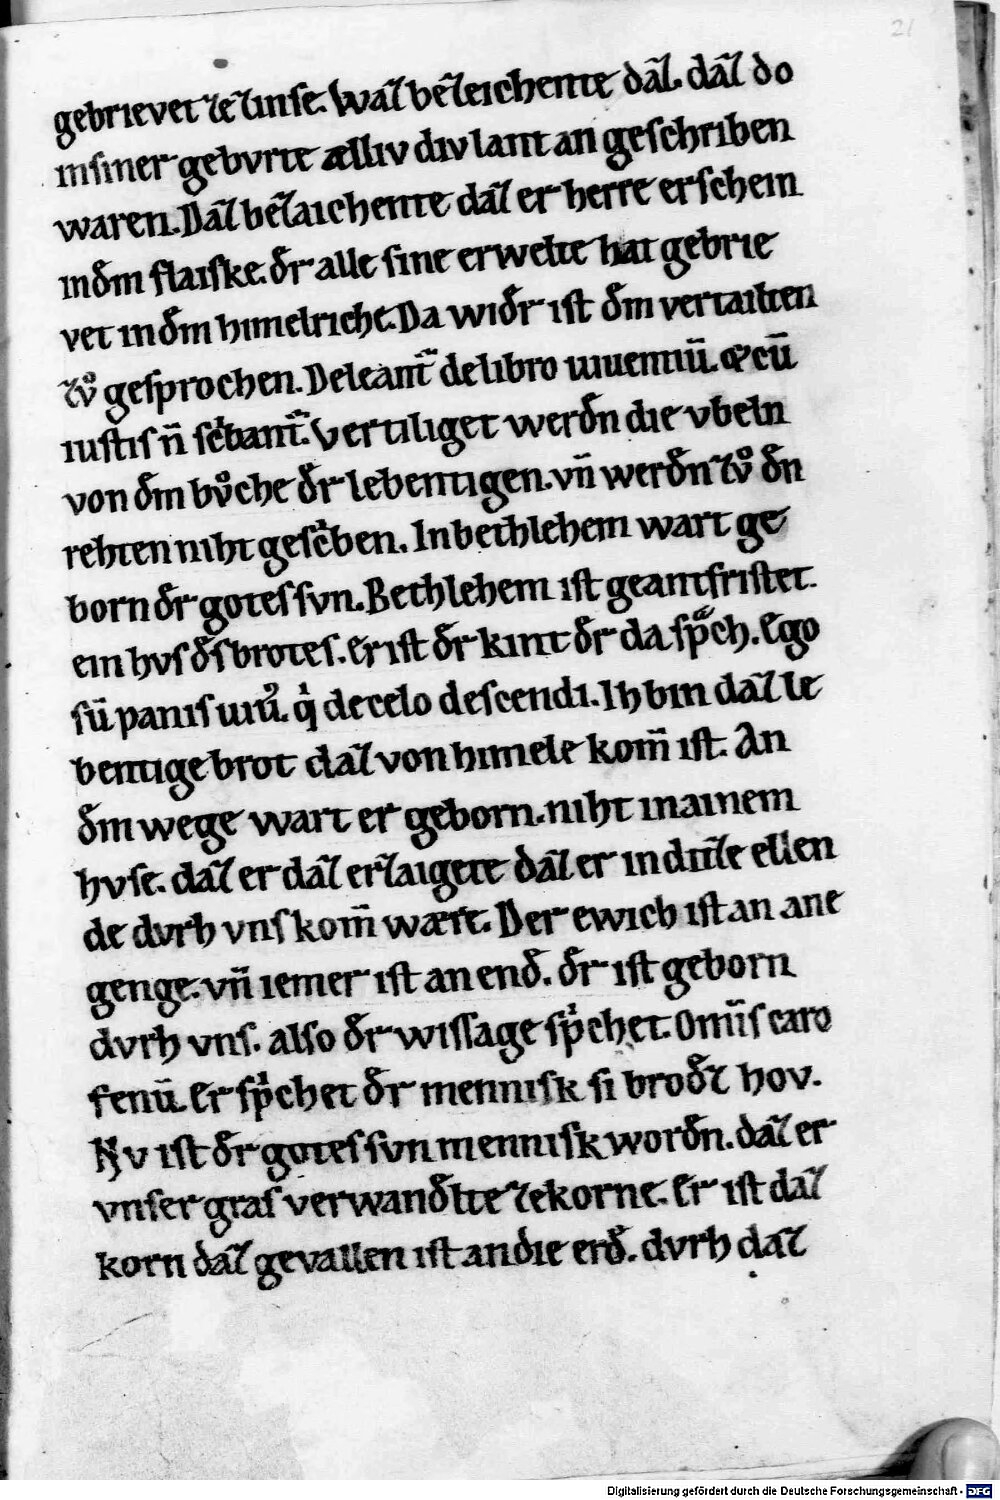 21
gebrievet ze zinse. Waz bezeichente daz. daz do
in siner gebvrte ælliv div lant an geschriben
waren. Daz bezaichente daz er herre erschein
in dem flaiske. der alle sine erwelte hat gebrie
vet in dem himelriche. Da wider ist dem vertailten
zvͦ gesprochen. Deleant̄ de libro uiuentiū. ⁊ cū
iustis n̄ sc̓bant̄. Vertiliget werdn̄ die vbeln
von dem bvͦche der lebentigen. vn̄ werdn̄ zvͦ den
rehten niht gesc̓ben. In bethlehem wart ge
born der gotes svn. Bethlehem ist geantfristet.
ein hvs des brotes. Er ist der kint der da sp̓ch. Ego
sū panis uiū. q̇ de celo descendi. Ih bin daz le
bentige brot daz von himele kom̄ ist. An
dem wege wart er geborn. niht in ainem
hvse. daz er daz erzaigete daz er in ditze ellen
de dvrh vns kom̄ wære. Der ewich ist an ane
genge. vn̄ iemer ist an end̄. der ist geborn
dvrh vns. also der wissage sp̓chet. Om̄is caro
fenū. Er sp̓chet der mennisk si brodez hov.
Nv ist der gotes svn mennisk wordn̄. daz er
vnser gras verwandelte ze korne. Er ist daz
korn daz gevallen ist an die erd̄. dvrh daz
Digitalisierung gefördert durch die Deutsche Forschungsgemeinschaft - DFG